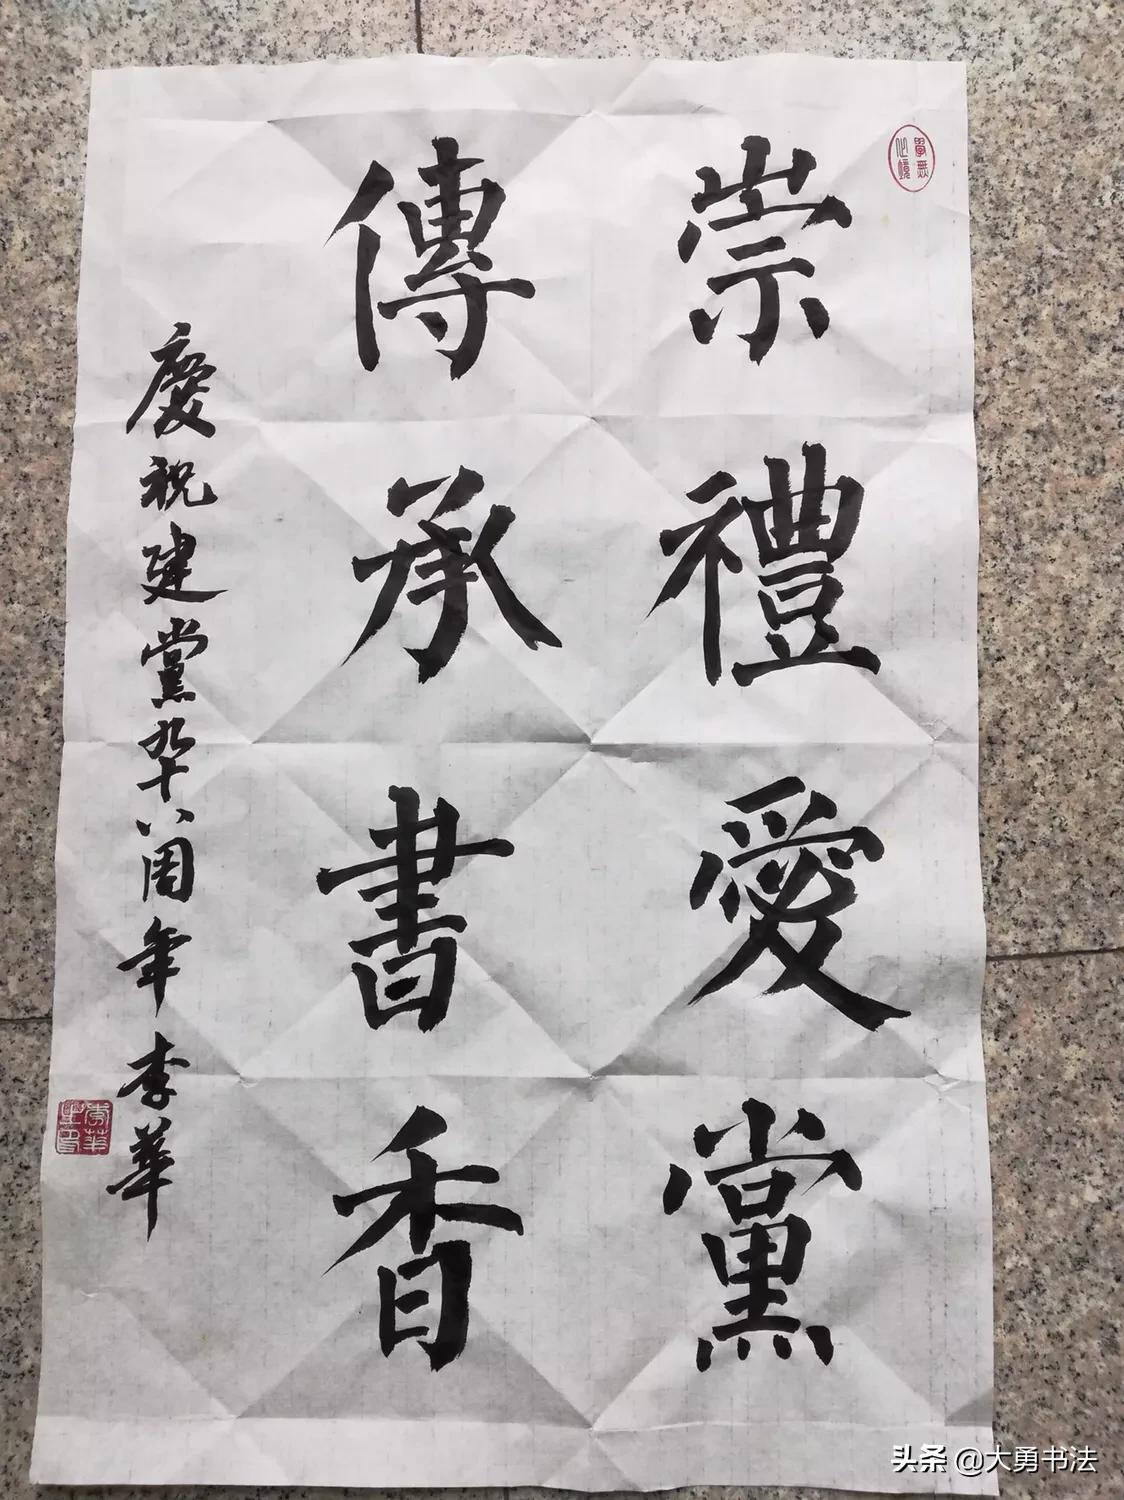 崇禮愛黨
傳承書香
慶祝建黨九十八周年 李華
學無止境
李華之印
头条 @大勇书法